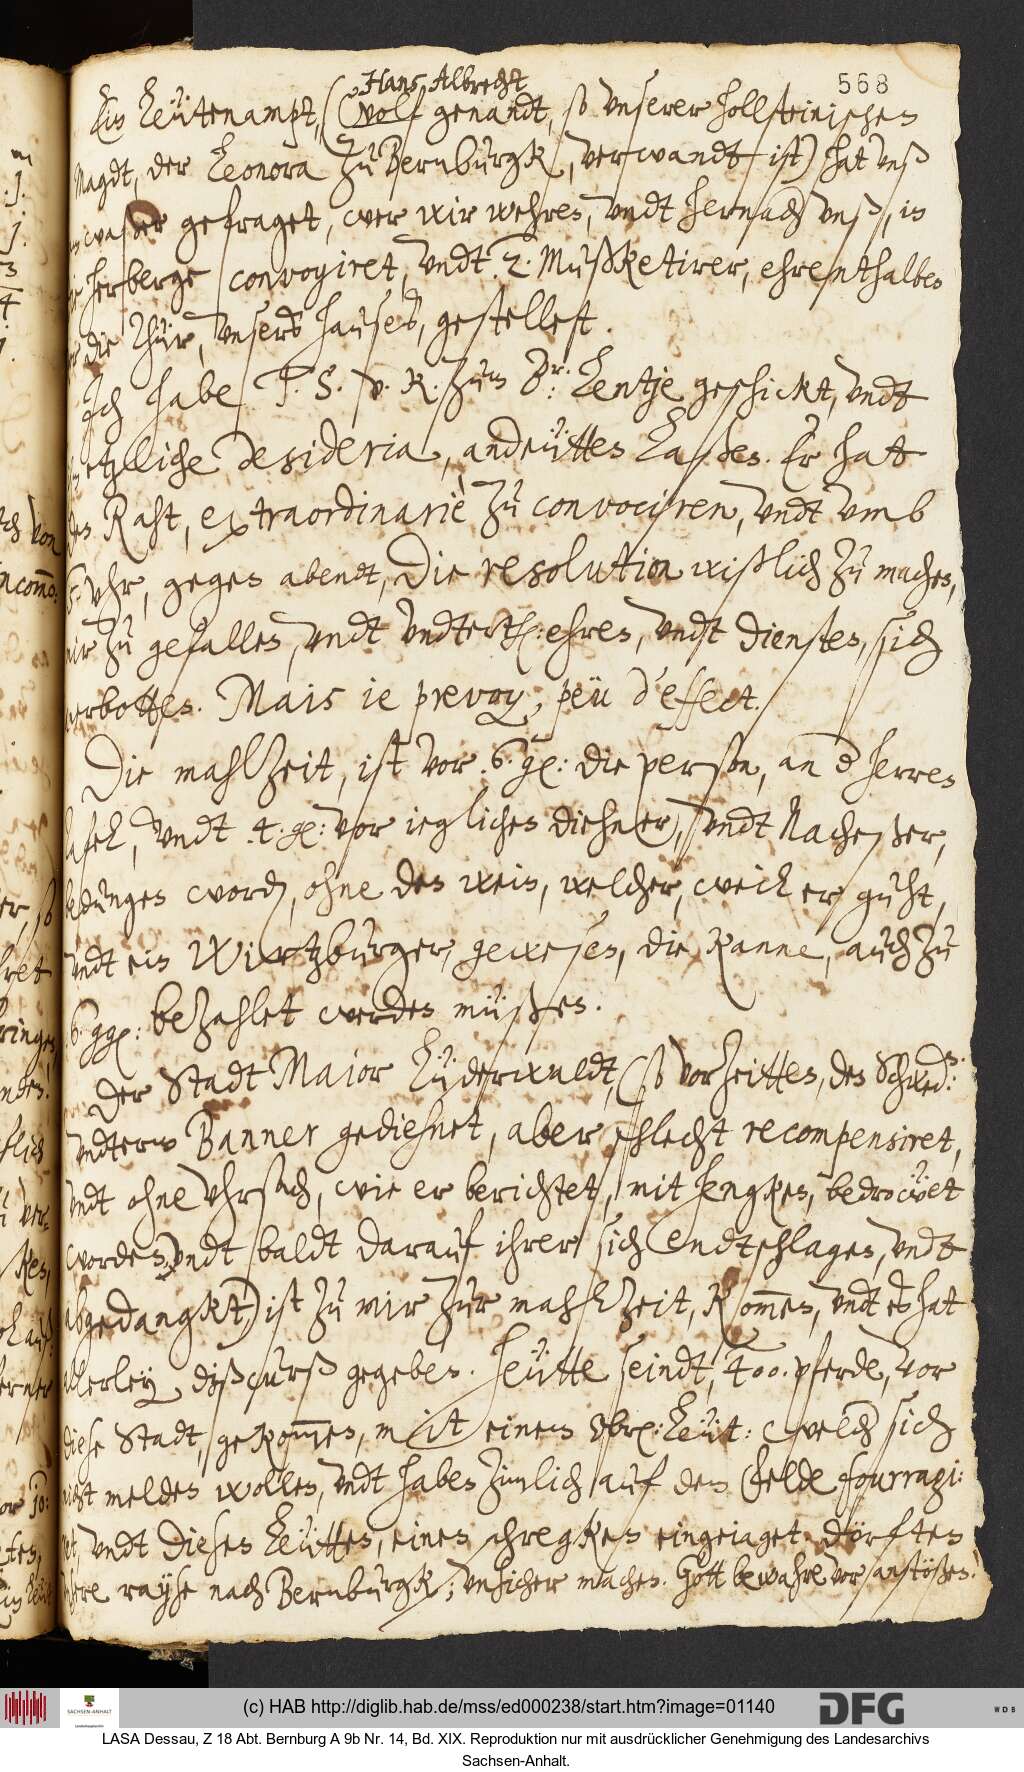 568
Hans Albrecht
Ein Leütenampt, (Wolf genandt, so vnserer Hollsteinischen
Magdt, der Leonora zu Bernburgk, verwandt ist) hat vnß
gefraget, wer wir wehren, vndt hernach vnß, in
herberge convoyiret, vndt 2. Mußketirer, ehrenthalben
die Thür, vnsers hauses, gestellett.
Ich habe T. S. v. R. zum Dr: Lentje geschickt, vndt
etzliche desideria, andeütten laßen. Er hat
den Raht, extraordinarië zu convociren, vndt vmb
5. vhr, gegen abendt, die resolution wißlich zu machen,
mir zu gefallen, vndt vndterth: ehren, vndt diensten, sich
erbotten. Mais ie prevoy, peü d'effect.
Die mahlzeit, ist vor .6. gl: die person, an der herren
Tafel, vndt .4. gl: vor ieglichen diehner, vndt Nacheßer,
bedungen worden, ohne den wein, welcher, weil er guht,
vndt ein Wirtzburger, gewesen, die Kanne, auch zu
6 ggl: bezahlet werden müßen.
Der Stadt Maior Lüderwaldt, (so vorzeitten, den Schwed:
vndterm Banner gediehnet, aber schlecht recompensiret,
vndt ohne vhrsach, wie er berichtet, mit hengken, bedrowet
worden, vndt baldt darauf ihrer sich endtschlagen, vndt
abgedangkt) ist zu mir zur mahlzeit, kommen, vndt es hat
allerley dißcurß gegeben. Heütte seindt, 400. pferde, vor
diese Stadt, gekommen, mit einem Obrl: Leüt: welcher sich
nicht melden wollen, vndt haben zimlich auf dem Felde fourragi:
ret, vndt diesen Leütten, einen schregken eingeiaget. dörften
vnsere rayse nach Bernburgk, vnsicher machen. Gott bewahre vor anstößen.
(c) HAB http://diglib.hab.de/mss/ed000238/start.htm?image=01140
SACHSEN-ANHALT
DFG
WDB
LASA Dessau, Z 18 Abt. Bernburg A 9b Nr. 14, Bd. XIX. Reproduktion nur mit ausdrücklicher Genehmigung des Landesarchivs
Sachsen-Anhalt.